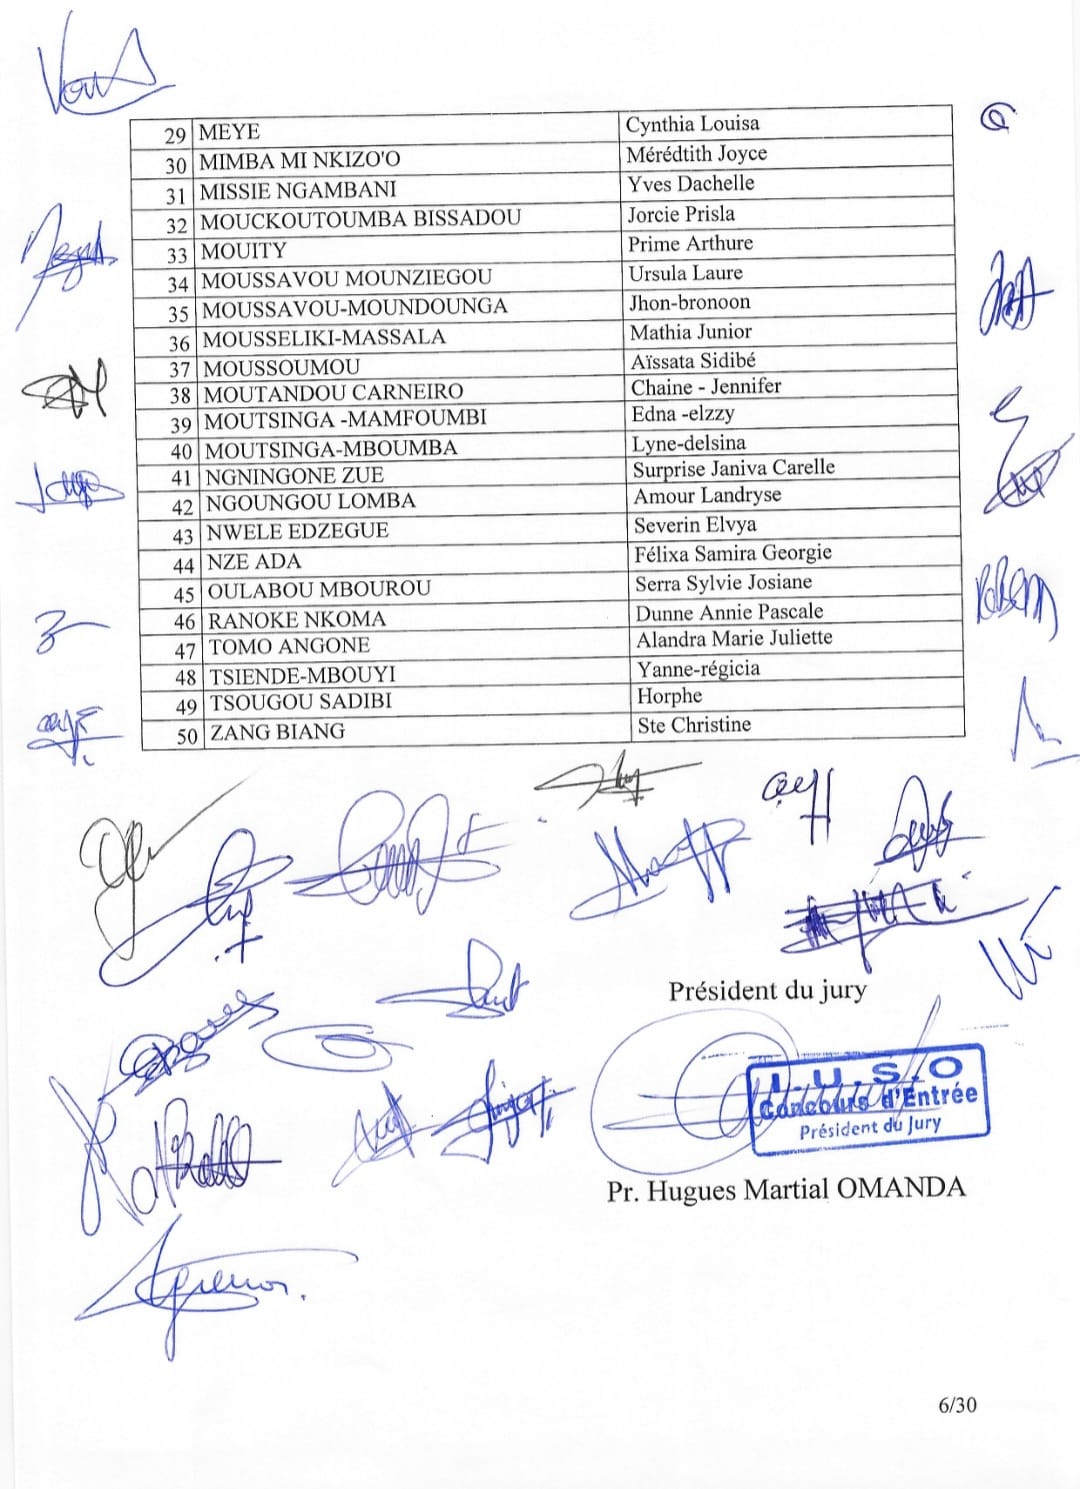 29 MEYE Cynthia Louisa
30 MIMBA MI NKIZO'O Mérédtith Joyce
31 MISSIE NGAMBANI Yves Dachelle
32 MOUCKOUTOUMBA BISSADOU Jorcie Prisla
33 MOUITY Prime Arthure
34 MOUSSAVOU MOUNZIEGOU Ursula Laure
35 MOUSSAVOU-MOUNDOUNGA Jhon-bronoon
36 MOUSSELIKI-MASSALA Mathia Junior
37 MOUSSOUMOU Aïssata Sidibé
38 MOUTANDOU CARNEIRO Chaine - Jennifer
39 MOUTSINGA -MAMFOUMBI Edna -elzzy
40 MOUTSINGA-MBOUMBA Lyne-delsina
41 NGNINGONE ZUE Surprise Janiva Carelle
42 NGOUNGOU LOMBA Amour Landryse
43 NWELE EDZEGUE Severin Elvya
44 NZE ADA Félixa Samira Georgie
45 OULABOU MBOUROU Serra Sylvie Josiane
46 RANOKE NKOMA Dunne Annie Pascale
47 TOMO ANGONE Alandra Marie Juliette
48 TSIENDE-MBOUYI Yanne-régicia
49 TSOUGOU SADIBI Horphe
50 ZANG BIANG Ste Christine
Président du jury
I.U.S.O
Concours d'Entrée
Président du Jury
Pr. Hugues Martial OMANDA
6/30